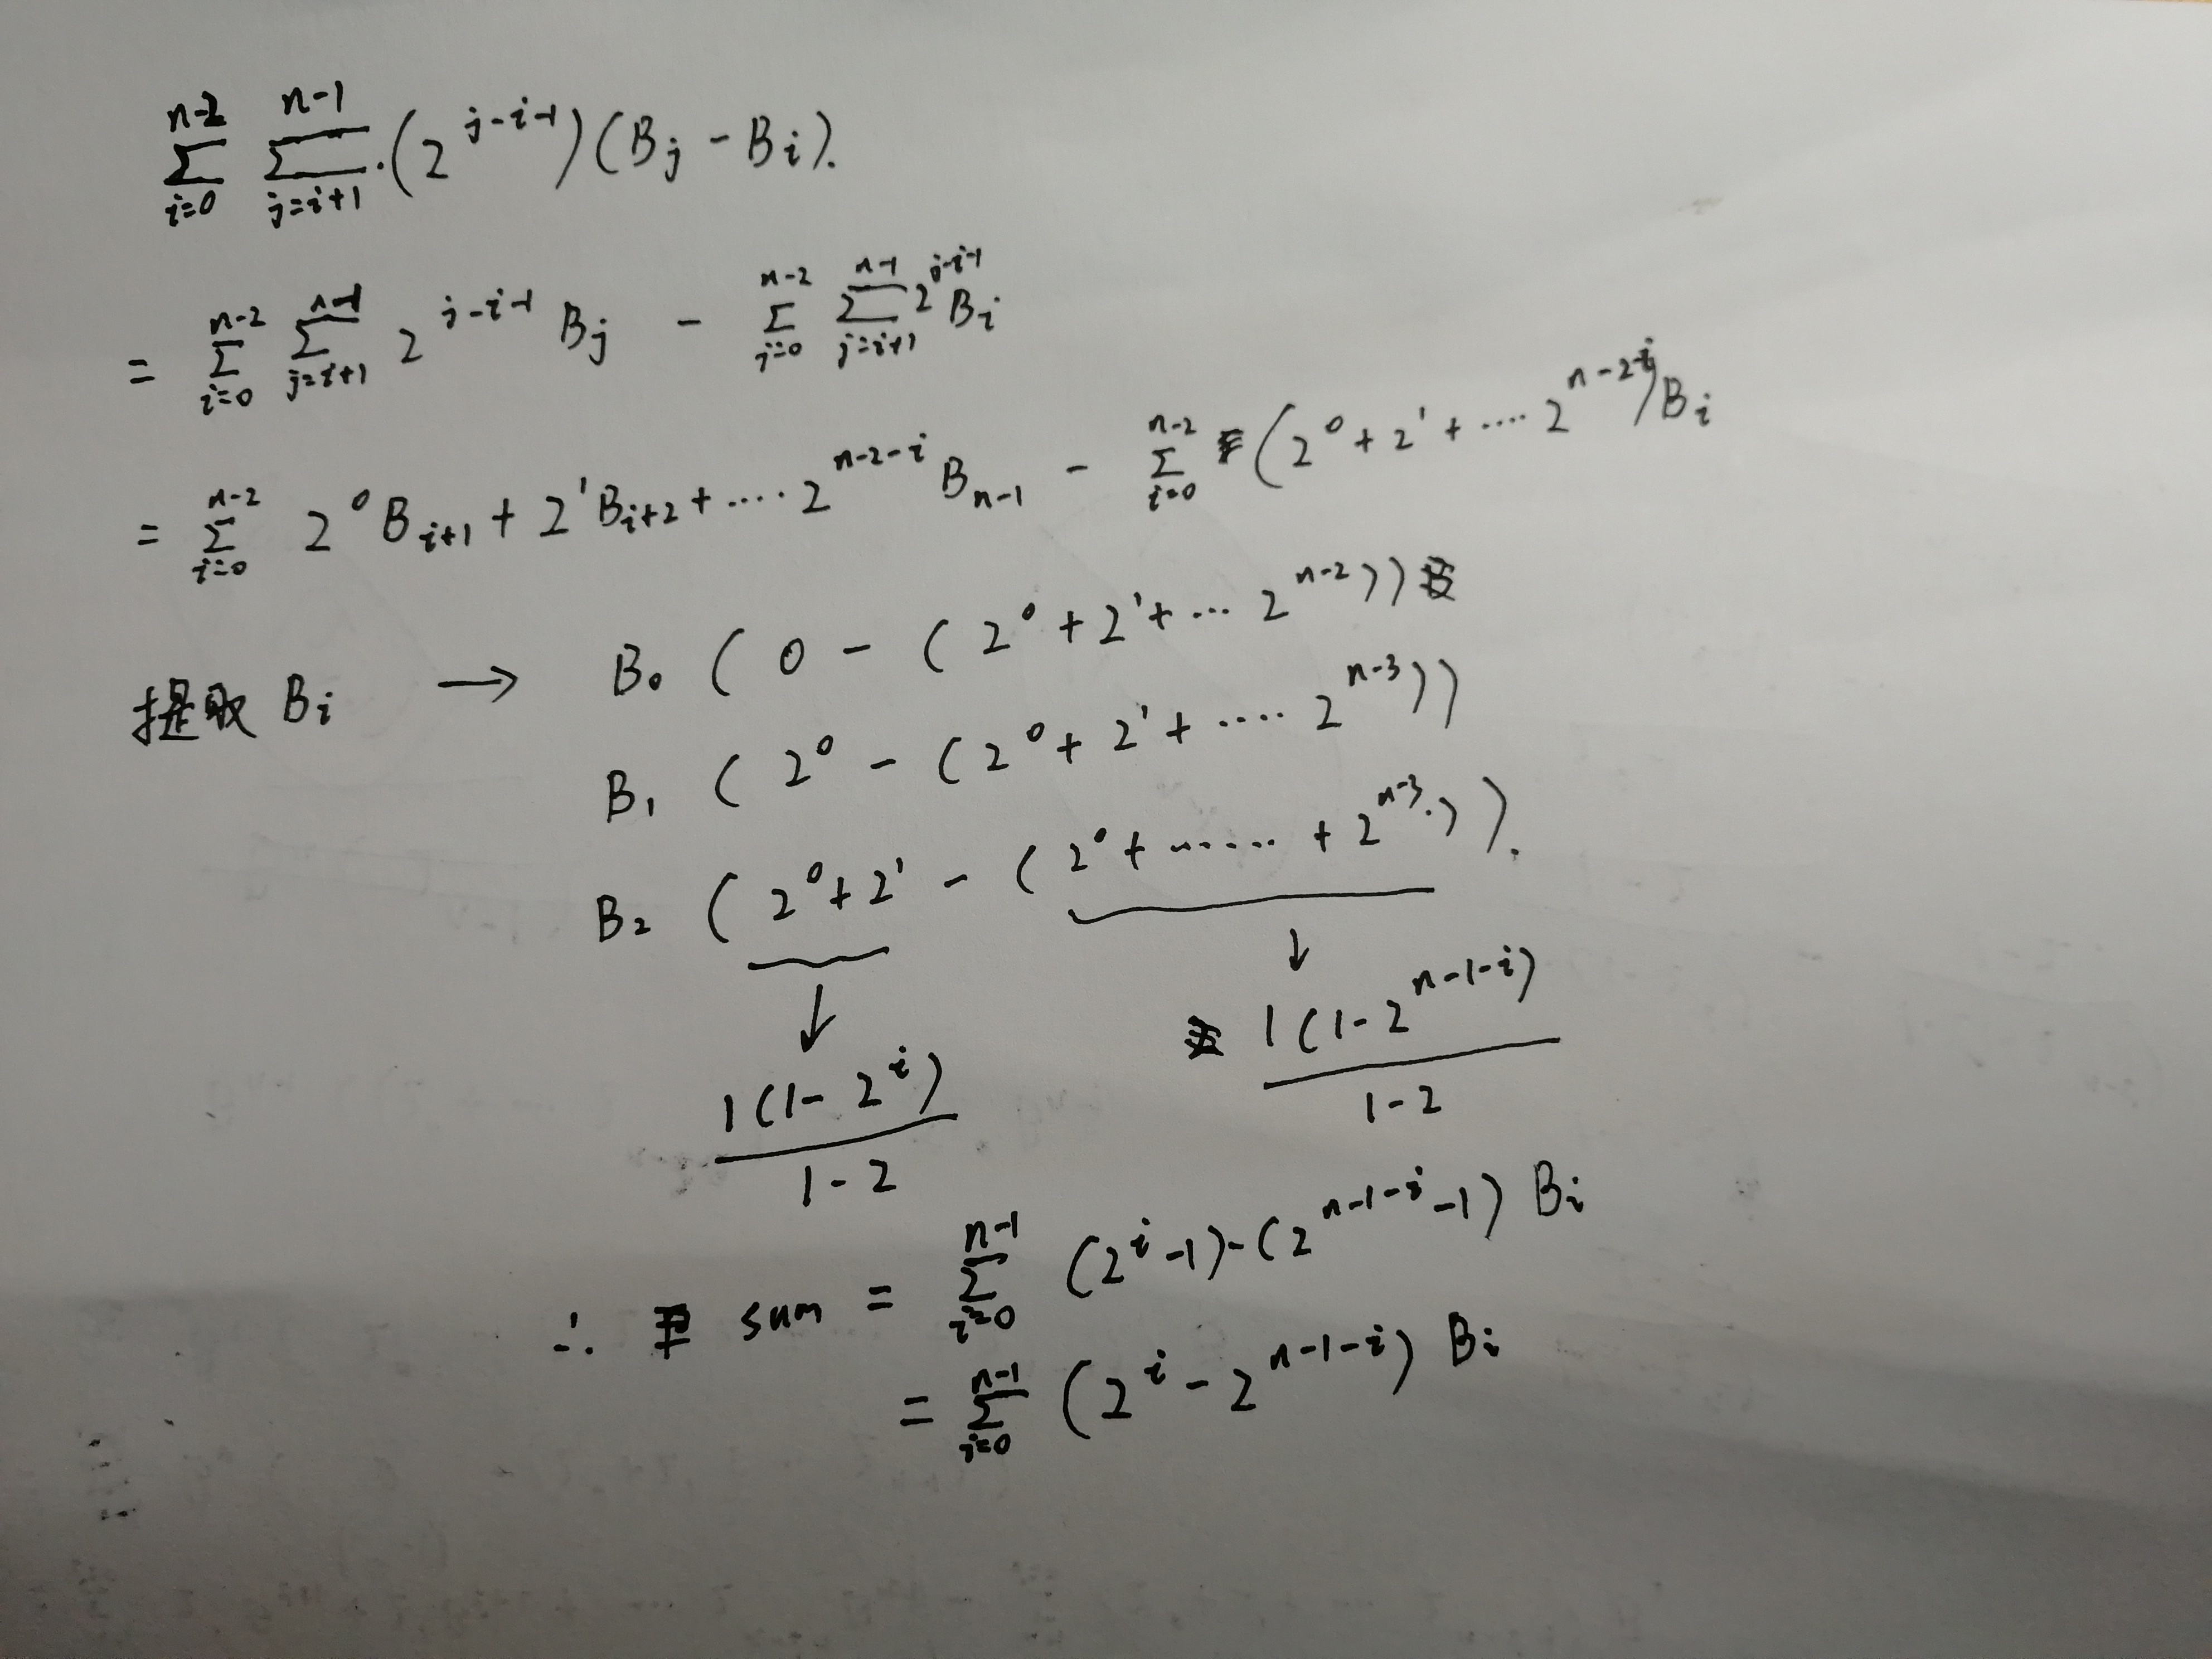 \sum_{i=0}^{n-2} \sum_{j=i+1}^{n-1} \cdot (2^{j-i-1})(B_j - B_i).
= \sum_{i=0}^{n-2} \sum_{j=i+1}^{n-1} 2^{j-i-1} B_j - \sum_{i=0}^{n-2} \sum_{j=i+1}^{n-1} 2^{j-i-1} B_i
= \sum_{i=0}^{n-2} 2^0 B_{i+1} + 2^1 B_{i+2} + \cdots 2^{n-2-i} B_{n-1} - \sum_{i=0}^{n-2} (2^0 + 2^1 + \cdots 2^{n-2-i}) B_i
提取 B_i → B_0 ( 0 - ( 2^0 + 2^1 + \cdots 2^{n-2}))
B_1 ( 2^0 - ( 2^0 + 2^1 + \cdots 2^{n-3}))
B_2 ( 2^0 + 2^1 - ( 2^0 + \cdots + 2^{n-3} \cdot )).
↓ ↓
\frac{1(1-2^i)}{1-2} \frac{1(1-2^{n-1-i})}{1-2}
∴ sum = \sum_{i=0}^{n-1} (2^i - 1) - (2^{n-1-i} - 1) B_i
= \sum_{i=0}^{n-1} (2^i - 2^{n-1-i}) B_i